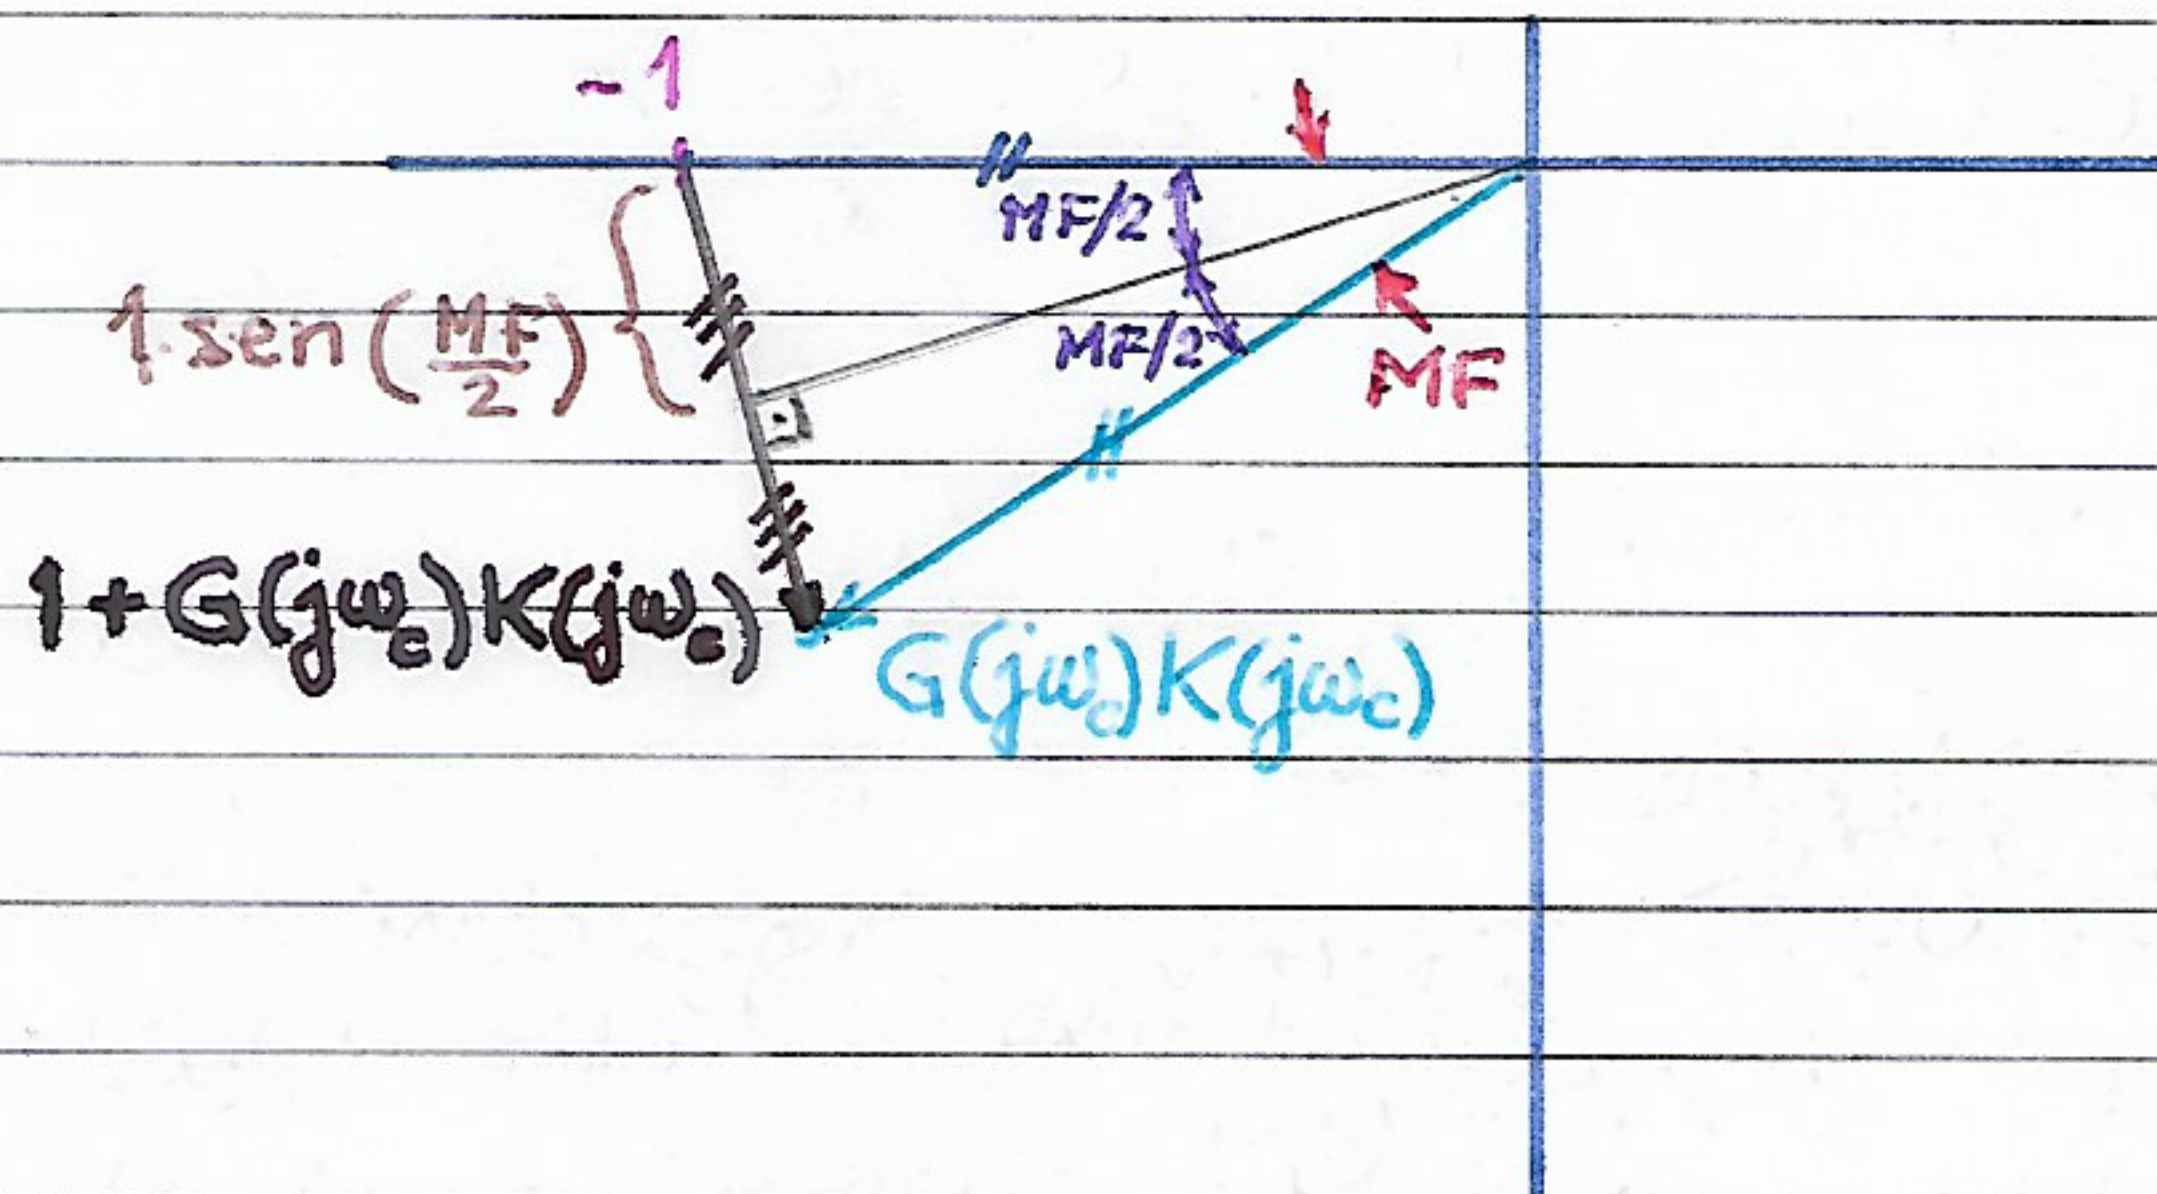 -1
MF/2
1.sen(MF/2)
MF/2
MF
1+G(jωc)K(jωc)
G(jωc)K(jωc)